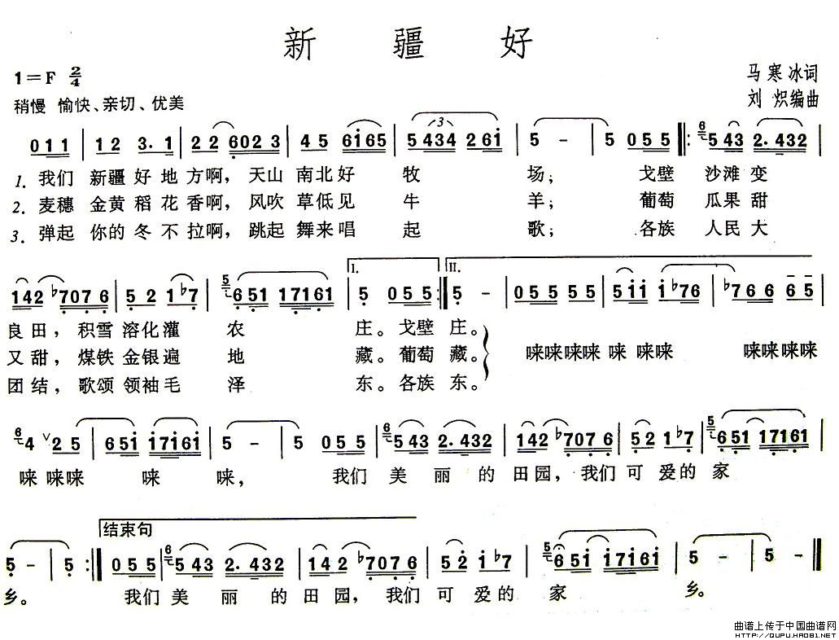 新疆好
1=F 2/4
马寒冰词
稍慢 愉快、亲切、优美
刘炽编曲
0 1 1 | 1 2 3. 1 | 2 2 6 0 2 3 | 4 5 6 1 6 5 | 5 4 3 4 2 6 1 | 5 - | 5 0 5 5 |: 5 4 3 2. 4 3 2 |
1. 我们 新疆好地方啊, 天山南北好 牧 场; 戈壁 沙滩变
2. 麦穗 金黄稻花香啊, 风吹草低见 牛 羊; 葡萄 瓜果甜
3. 弹起 你的冬不拉啊, 跳起舞来唱 起 歌; 各族 人民大
I. II.
1 4 2 ♭7 0 7 6 | 5 2 1 ♭7 | 6 5 1 1 7 1 6 1 | 5 0 5 5 :| 5 - | 0 5 5 5 5 | 5 1 1 1 ♭7 6 | ♭7 6 6 6 5 |
良田, 积雪溶化灌 农 庄。戈壁 庄。
又甜, 煤铁金银遍 地 藏。葡萄 藏。
唻唻唻唻 唻 唻唻 唻唻唻唻
团结, 歌颂领袖毛 泽 东。各族 东。
4 ∨ 2 5 | 6 5 1 1 7 1 6 1 | 5 - | 5 0 5 5 | 5 4 3 2. 4 3 2 | 1 4 2 ♭7 0 7 6 | 5 2 1 ♭7 | 6 5 1 1 7 1 6 1 |
唻 唻唻 唻 唻, 我们 美丽的田园, 我们可爱的家
结束句
5 - | 5 - :| 0 5 5 | 5 4 3 2. 4 3 2 | 1 4 2 ♭7 0 7 6 | 5 2 1 ♭7 | 6 5 1 1 7 1 6 1 | 5 - | 5 - ‖
乡。 我们美丽的田园, 我们可爱的家 乡。
曲谱上传于中国曲谱网
HTTP://QUPU.HAO81.NET